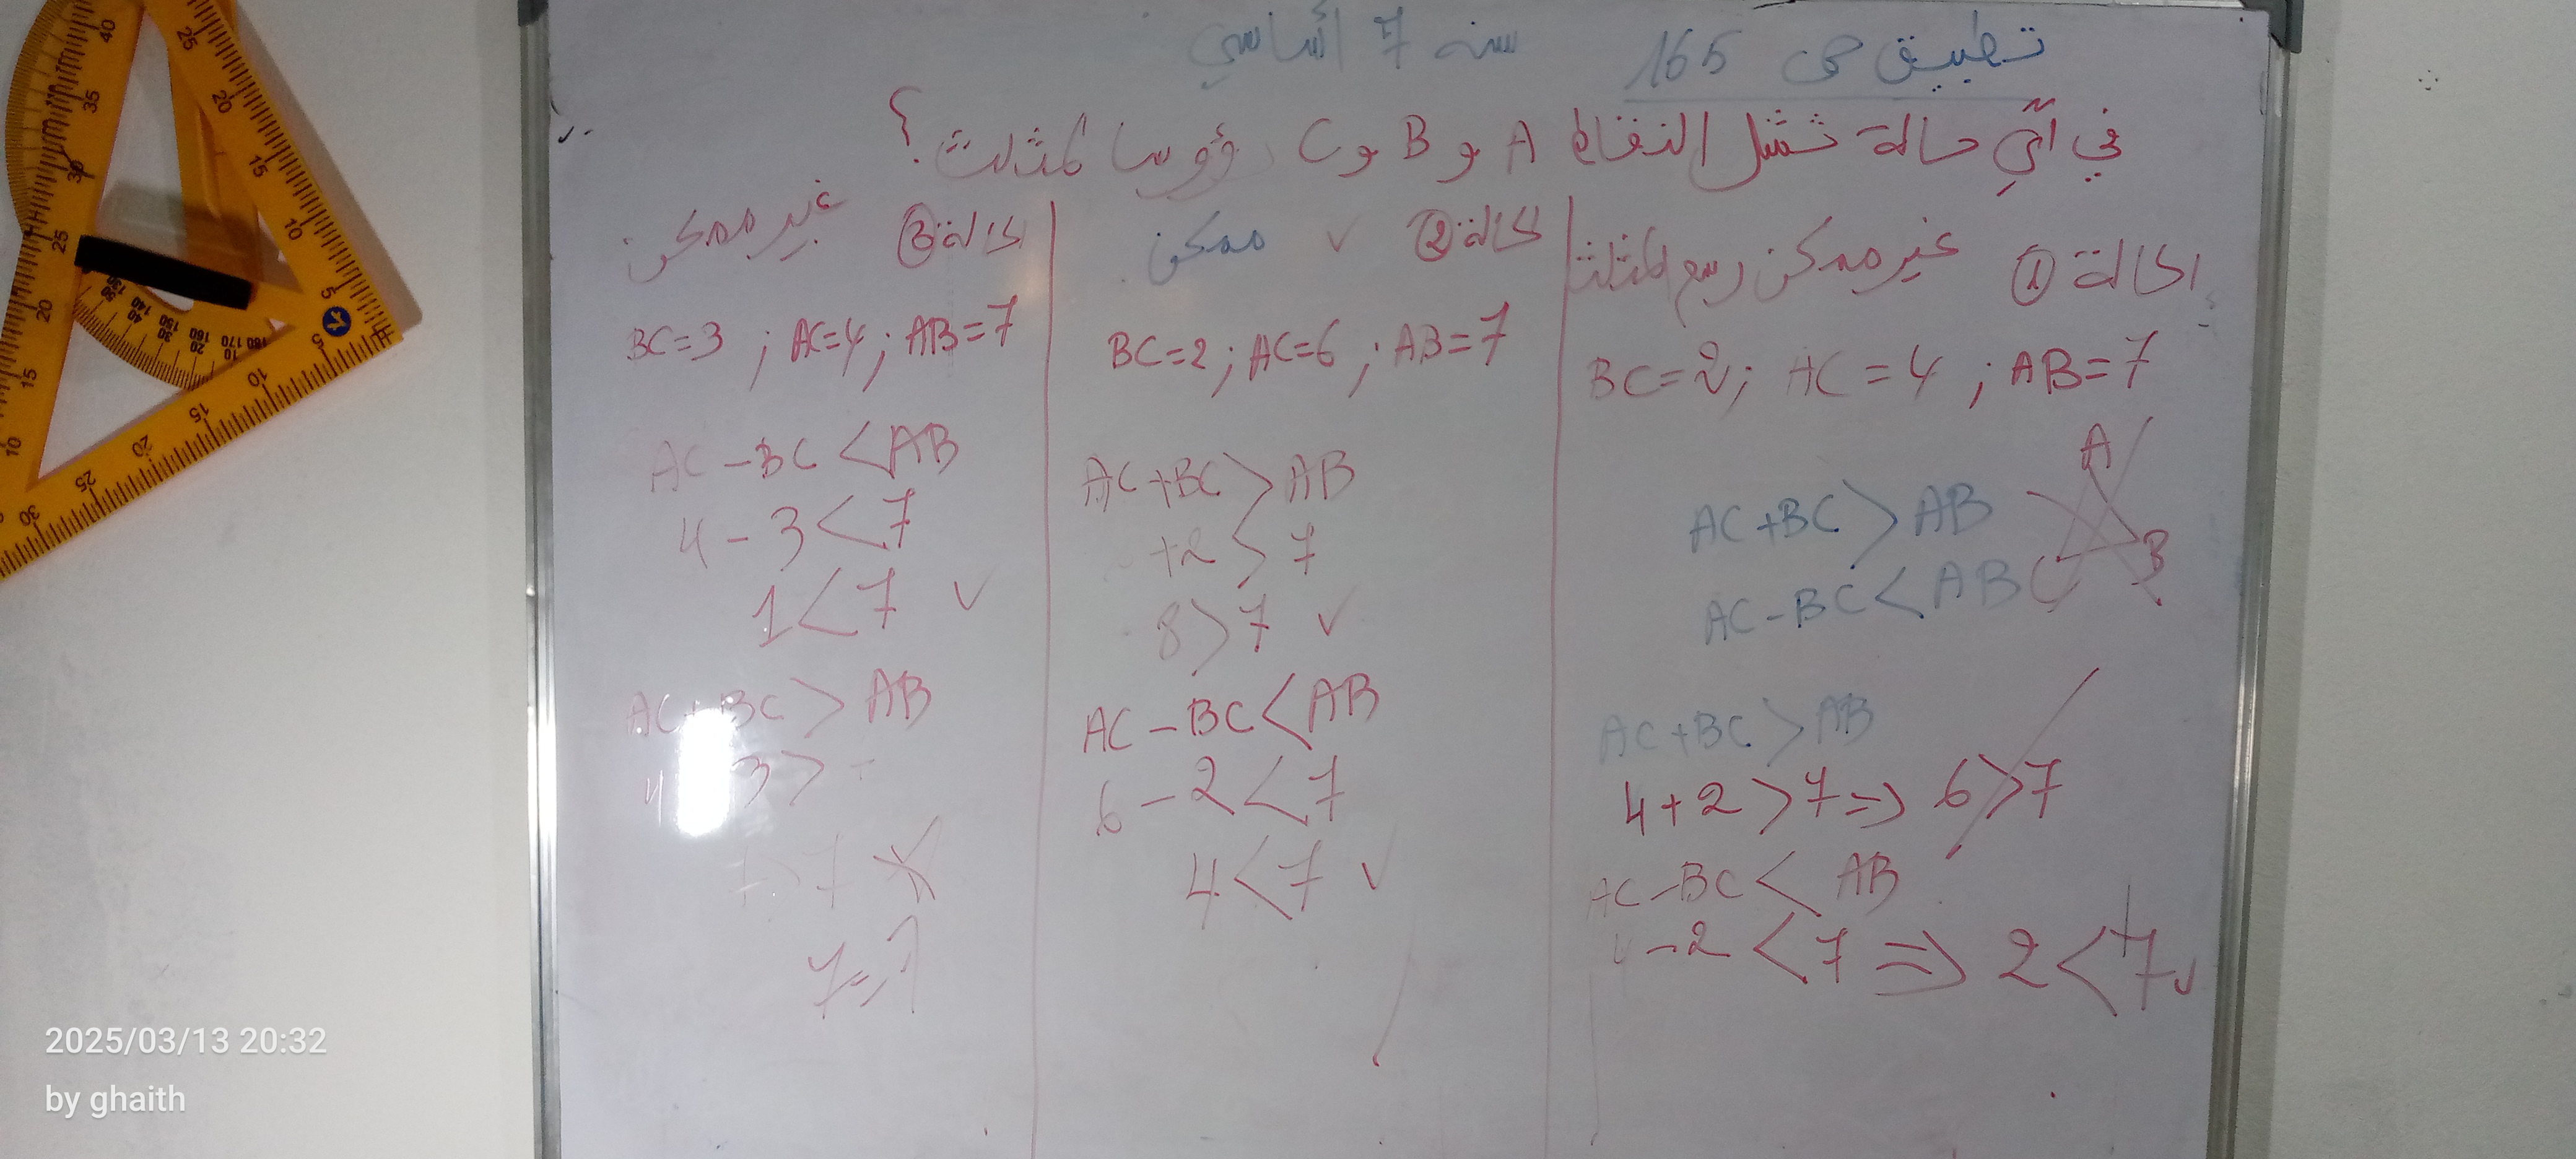 تطبيق ص 165 سنه 7 أساسي
في أيّ حالة تمثل النقاط A و B و C رؤوسا لمثلث؟
الحالة ① غير ممكن رسم المثلث
BC=2; AC=4; AB=7
A
B
C
AC+BC>AB
AC-BC<AB
AC+BC>AB
4+2>7=> 6>7
AC-BC< AB
4-2<7 => 2<7✓
الحالة ② ✓ ممكن
BC=2; AC=6; AB=7
AC+BC>AB
+2>7
8>7 ✓
AC-BC<AB
6-2<7
4<7 ✓
الحالة ③ غير ممكن
BC=3; AC=4; AB=7
AC-BC<AB
4-3<7
1<7 ✓
AC+BC>AB
4 3>
7>7 X
7=7
2025/03/13 20:32
by ghaith
40
35
30
25
20
15
10
25
20
15
10
5
5
10
15
20
25
30